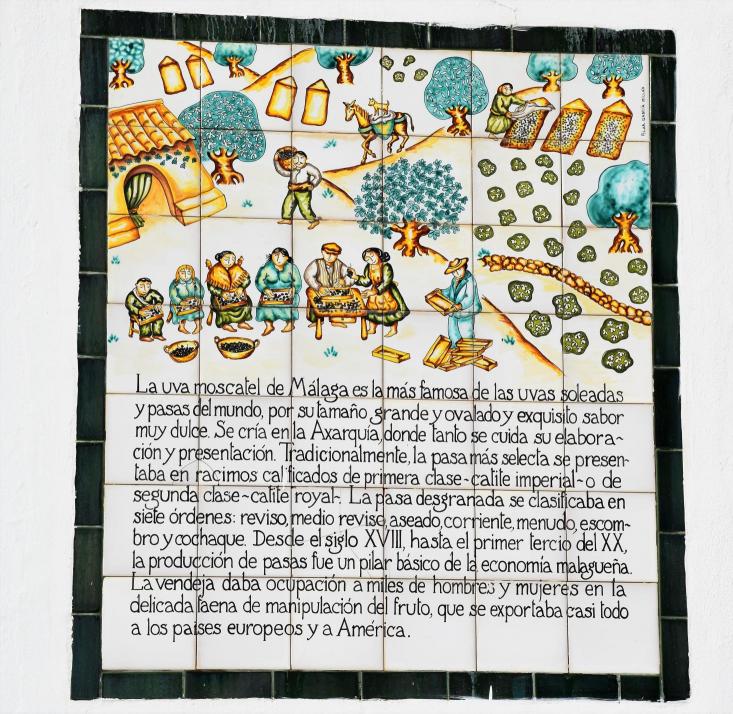 La uva moscatel de Málaga es la más famosa de las uvas soleadas
y pasas del mundo, por su tamaño grande y ovalado y exquisito sabor
muy dulce. Se cría en la Axarquía, donde tanto se cuida su elabora-
ción y presentación. Tradicionalmente, la pasa más selecta se presen-
taba en racimos calificados de primera clase-catite imperial-o de
segunda clase-catite royal-. La pasa desgranada se clasificaba en
siete órdenes: reviso, medio reviso, aseado, corriente, menudo, escom-
bro y cochaque. Desde el siglo XVIII, hasta el primer tercio del XX,
la producción de pasas fue un pilar básico de la economía malagueña.
La vendeja daba ocupación a miles de hombres y mujeres en la
delicada faena de manipulación del fruto, que se exportaba casi todo
a los países europeos y a América.